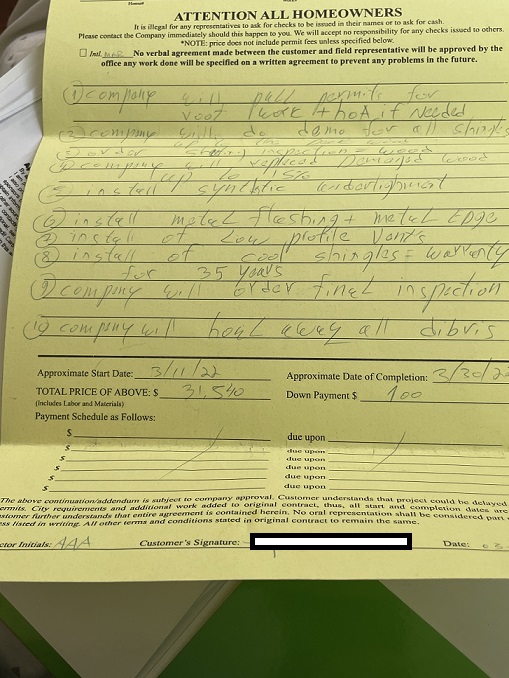 ATTENTION ALL HOMEOWNERS
It is illegal for any representatives to ask for checks to be issued in their names or to ask for cash.
Please contact the Company immediately should this happen to you. We will accept no responsibility for any checks issued to others.
*NOTE: price does not include permit fees unless specified below.
Intl. No verbal agreement made between the customer and field representative will be approved by the
office any work done will be specified on a written agreement to prevent any problems in the future.
① company will pull permits for
roof work + hoA if Needed
② company will do demo for all shingles
③ order inspection = wood
④ company will replaced Damaged wood
up to 15%
⑤ install synthetic underlighment
⑥ install metal flashing + metal Edge
⑦ install of Low profile Vant's
⑧ install of cool shingles = warranty
for 35 years
⑨ company will order final inspection
⑩ company will houl away all dibris
Approximate Start Date: 3/11/22
Approximate Date of Completion: 3/30/2
TOTAL PRICE OF ABOVE: $ 31,540
Down Payment $ 100
(Includes Labor and Materials)
Payment Schedule as Follows:
$ due upon
$ due upon
$ due upon
$ due upon
$ due upon
$ due upon
The above continuation/addendum is subject to company approval. Customer understands that project could be delayed
ermits. City requirements and additional work added to original contract, thus, all start and completion dates are
stomer further understands that entire agreement is contained herein. No oral representation shall be considered part
ess listed in writing. All other terms and conditions stated in original contract to remain the same.
ctor Initials: AAA Customer's Signature: Date: 03